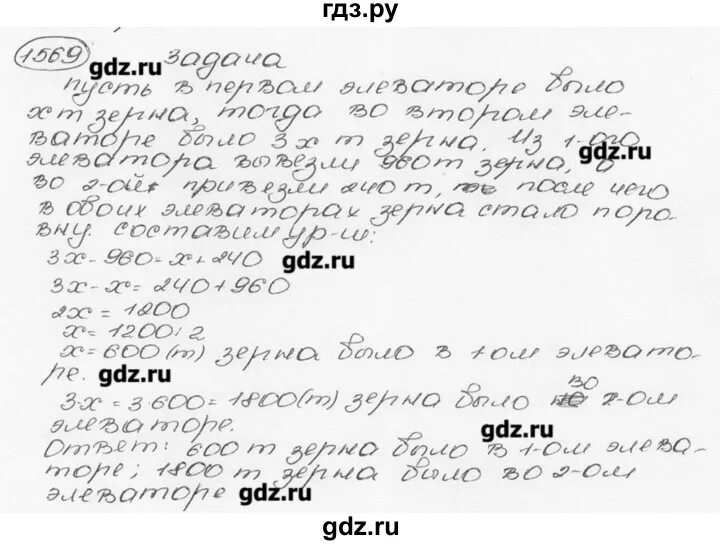 гдз.ру
1569 задача
gdz.ru
пусть в первом элеваторе было
x т зерна, тогда во втором эле-
ваторе было 3x т зерна. Из 1-ого
gdz.ru
элеватора вывезли 960 т зерна, а
во 2-ой привезли 240 т, после чего
в обоих элеваторах зерна стало поро-
вну. составим ур-ие:
3x-960=x+240 gdz.ru
3x-x=240+960
2x=1200
x=1200:2
x=600(т) зерна было в 1ом элевато-
ре. gdz.ru
3·x=3·600=1800(т) зерна было во 2-ом
элеваторе. gdz.ru
Ответ: 600 т зерна было в 1-ом элева-
торе; 1800 т зерна было во 2-ом
элеваторе gdz.ru
gdz.ru